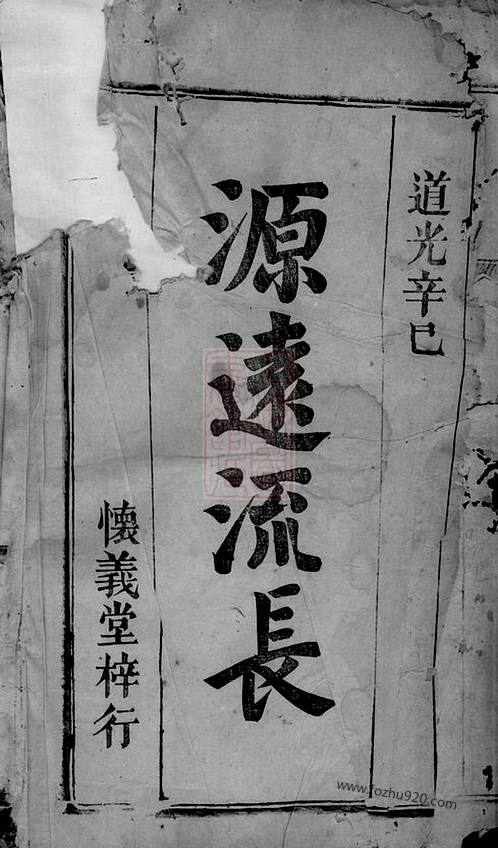 道光辛巳
源遠流長
懷義堂梓行
www.fozhu920.com